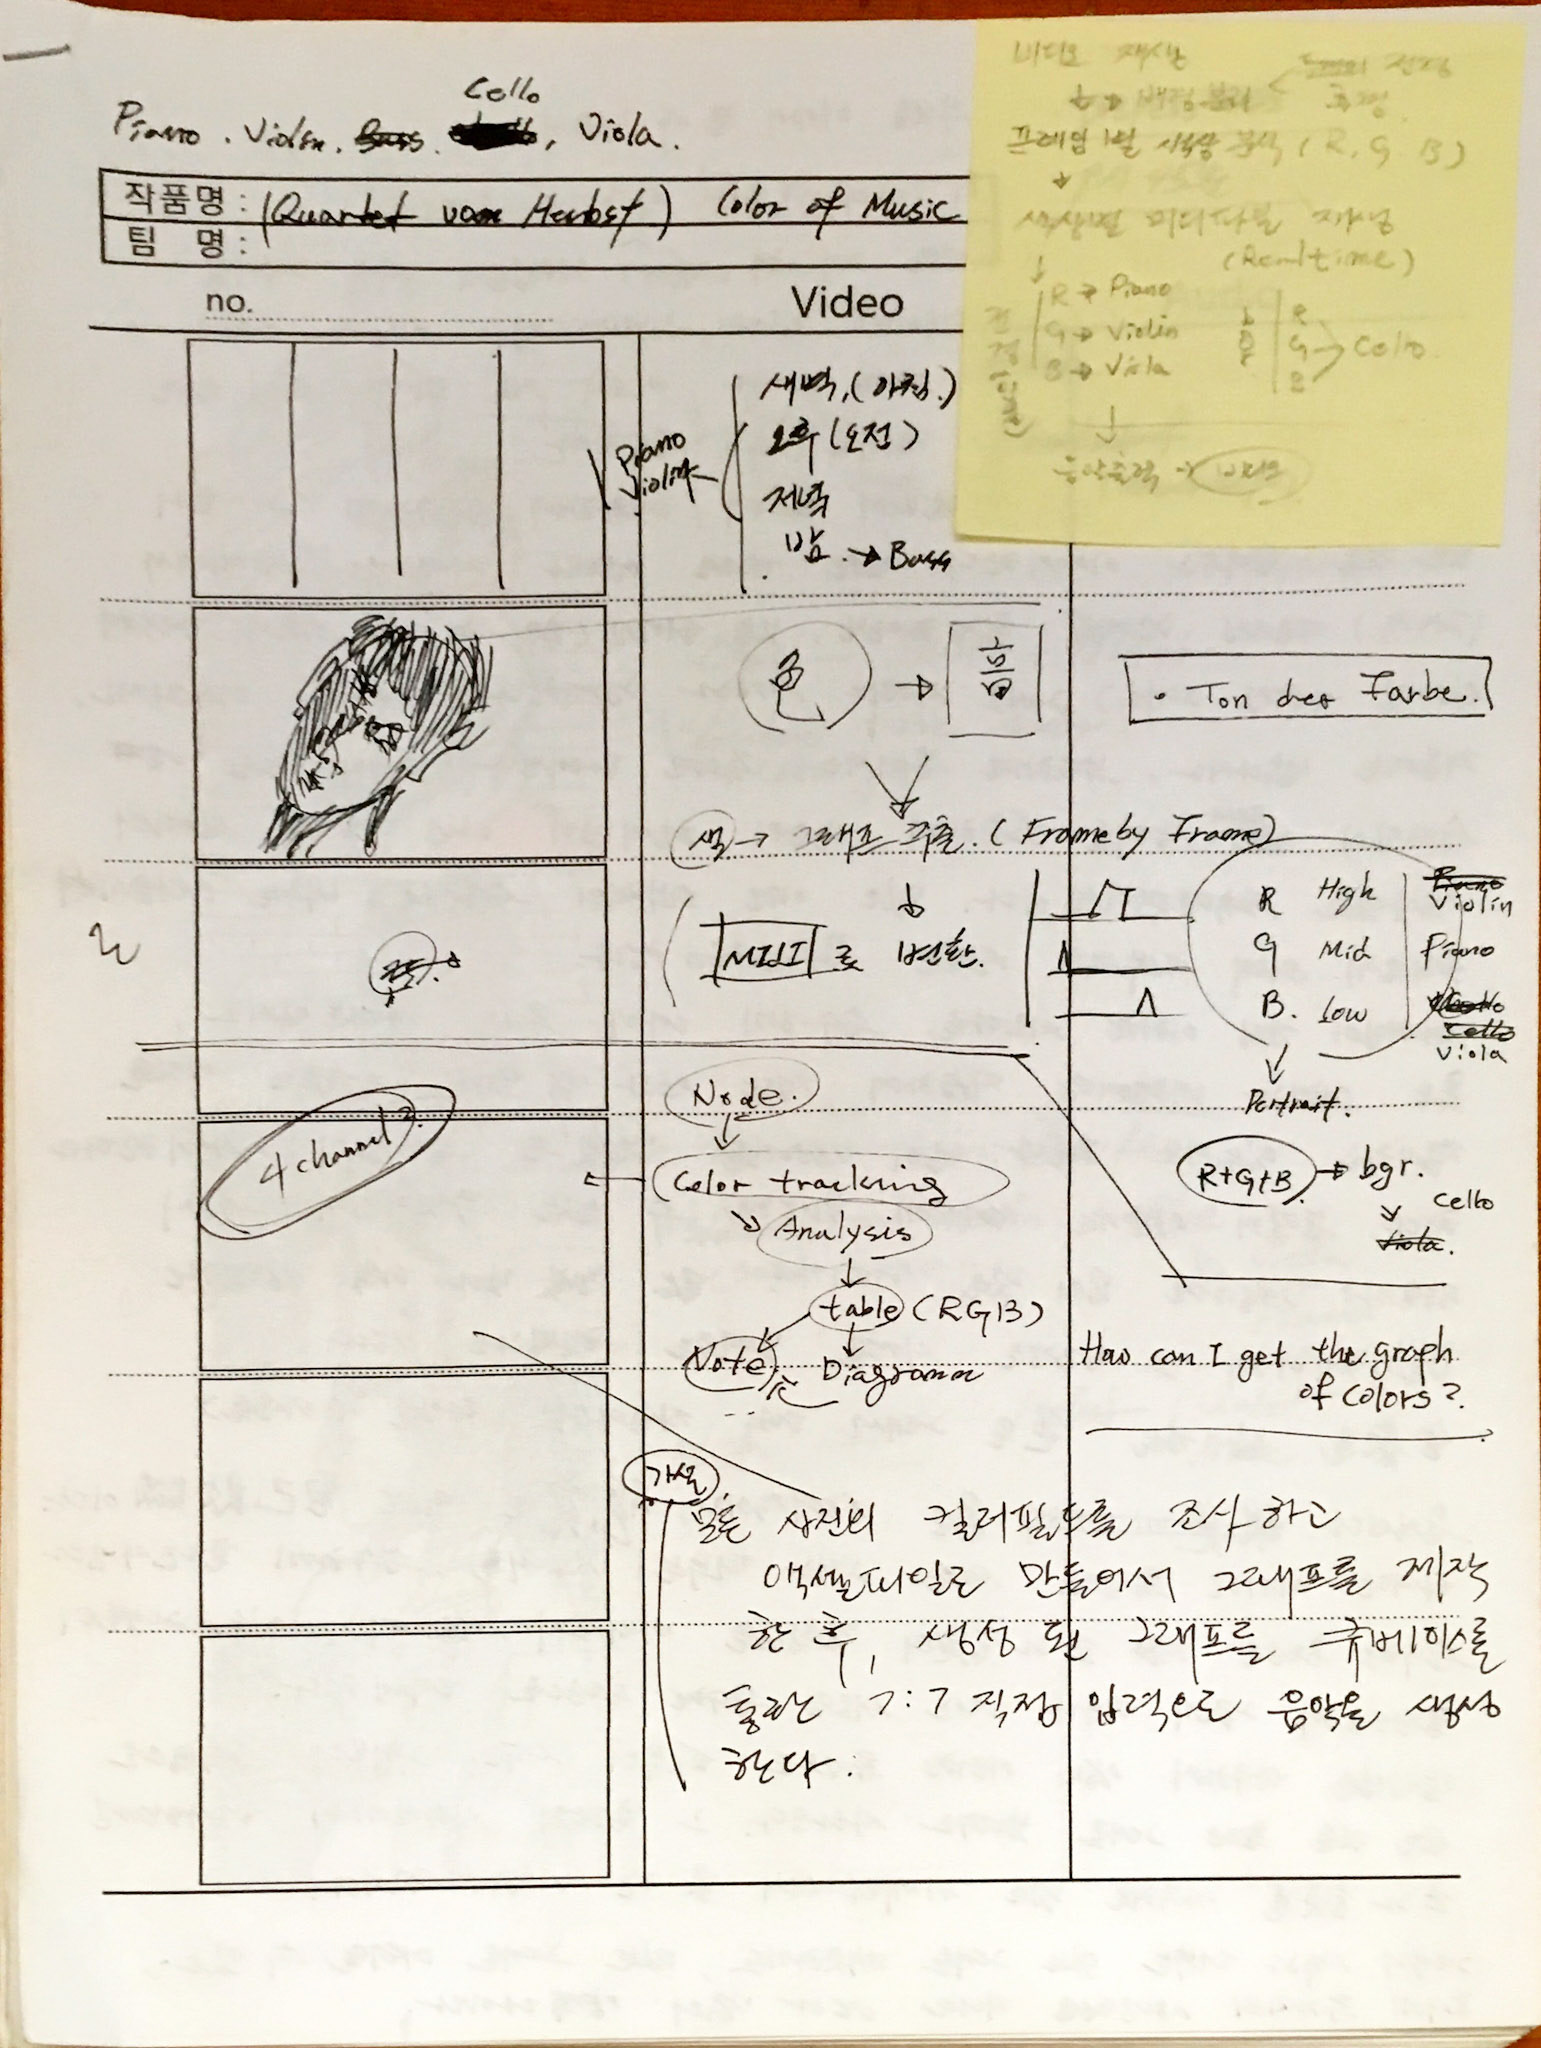 Cello
Piano. Violin. Bass. Viola.
작품명: (Quartet vom Herbst) Color of Music
팀 명:
no.
Video
새벽, (아침.)
오후 (오전)
저녁
밤. → Bass
Piano
Violin
色 → 음
• Ton der Farbe.
색 → 그래프 추출. (Frame by Frame)
MIDI 로 변환.
R High Piano
Violin
G Mid Piano
B. Low
Cello
Viola
Portrait.
R+G+B → bgr.
Cello
Viola.
4 channel?
Node.
Color tracking
Analysis
table (RGB)
Note
Diagramm
How can I get the graph
of colors?
가설.
모든 사진의 컬러필드를 조사하고
액셀파일로 만들어서 그래프를 제작
한 후, 생성 된 그래프를 큐베이스를
통한 직접 입력으로 음악을 생성
한다.
비디오 재생
배경분리
프레임 1별 분석 (R, G, B)
미디파일 재생
(Realtime)
R → Piano
G → Violin
B → Viola
R
G → Cello
B
음악출력 →